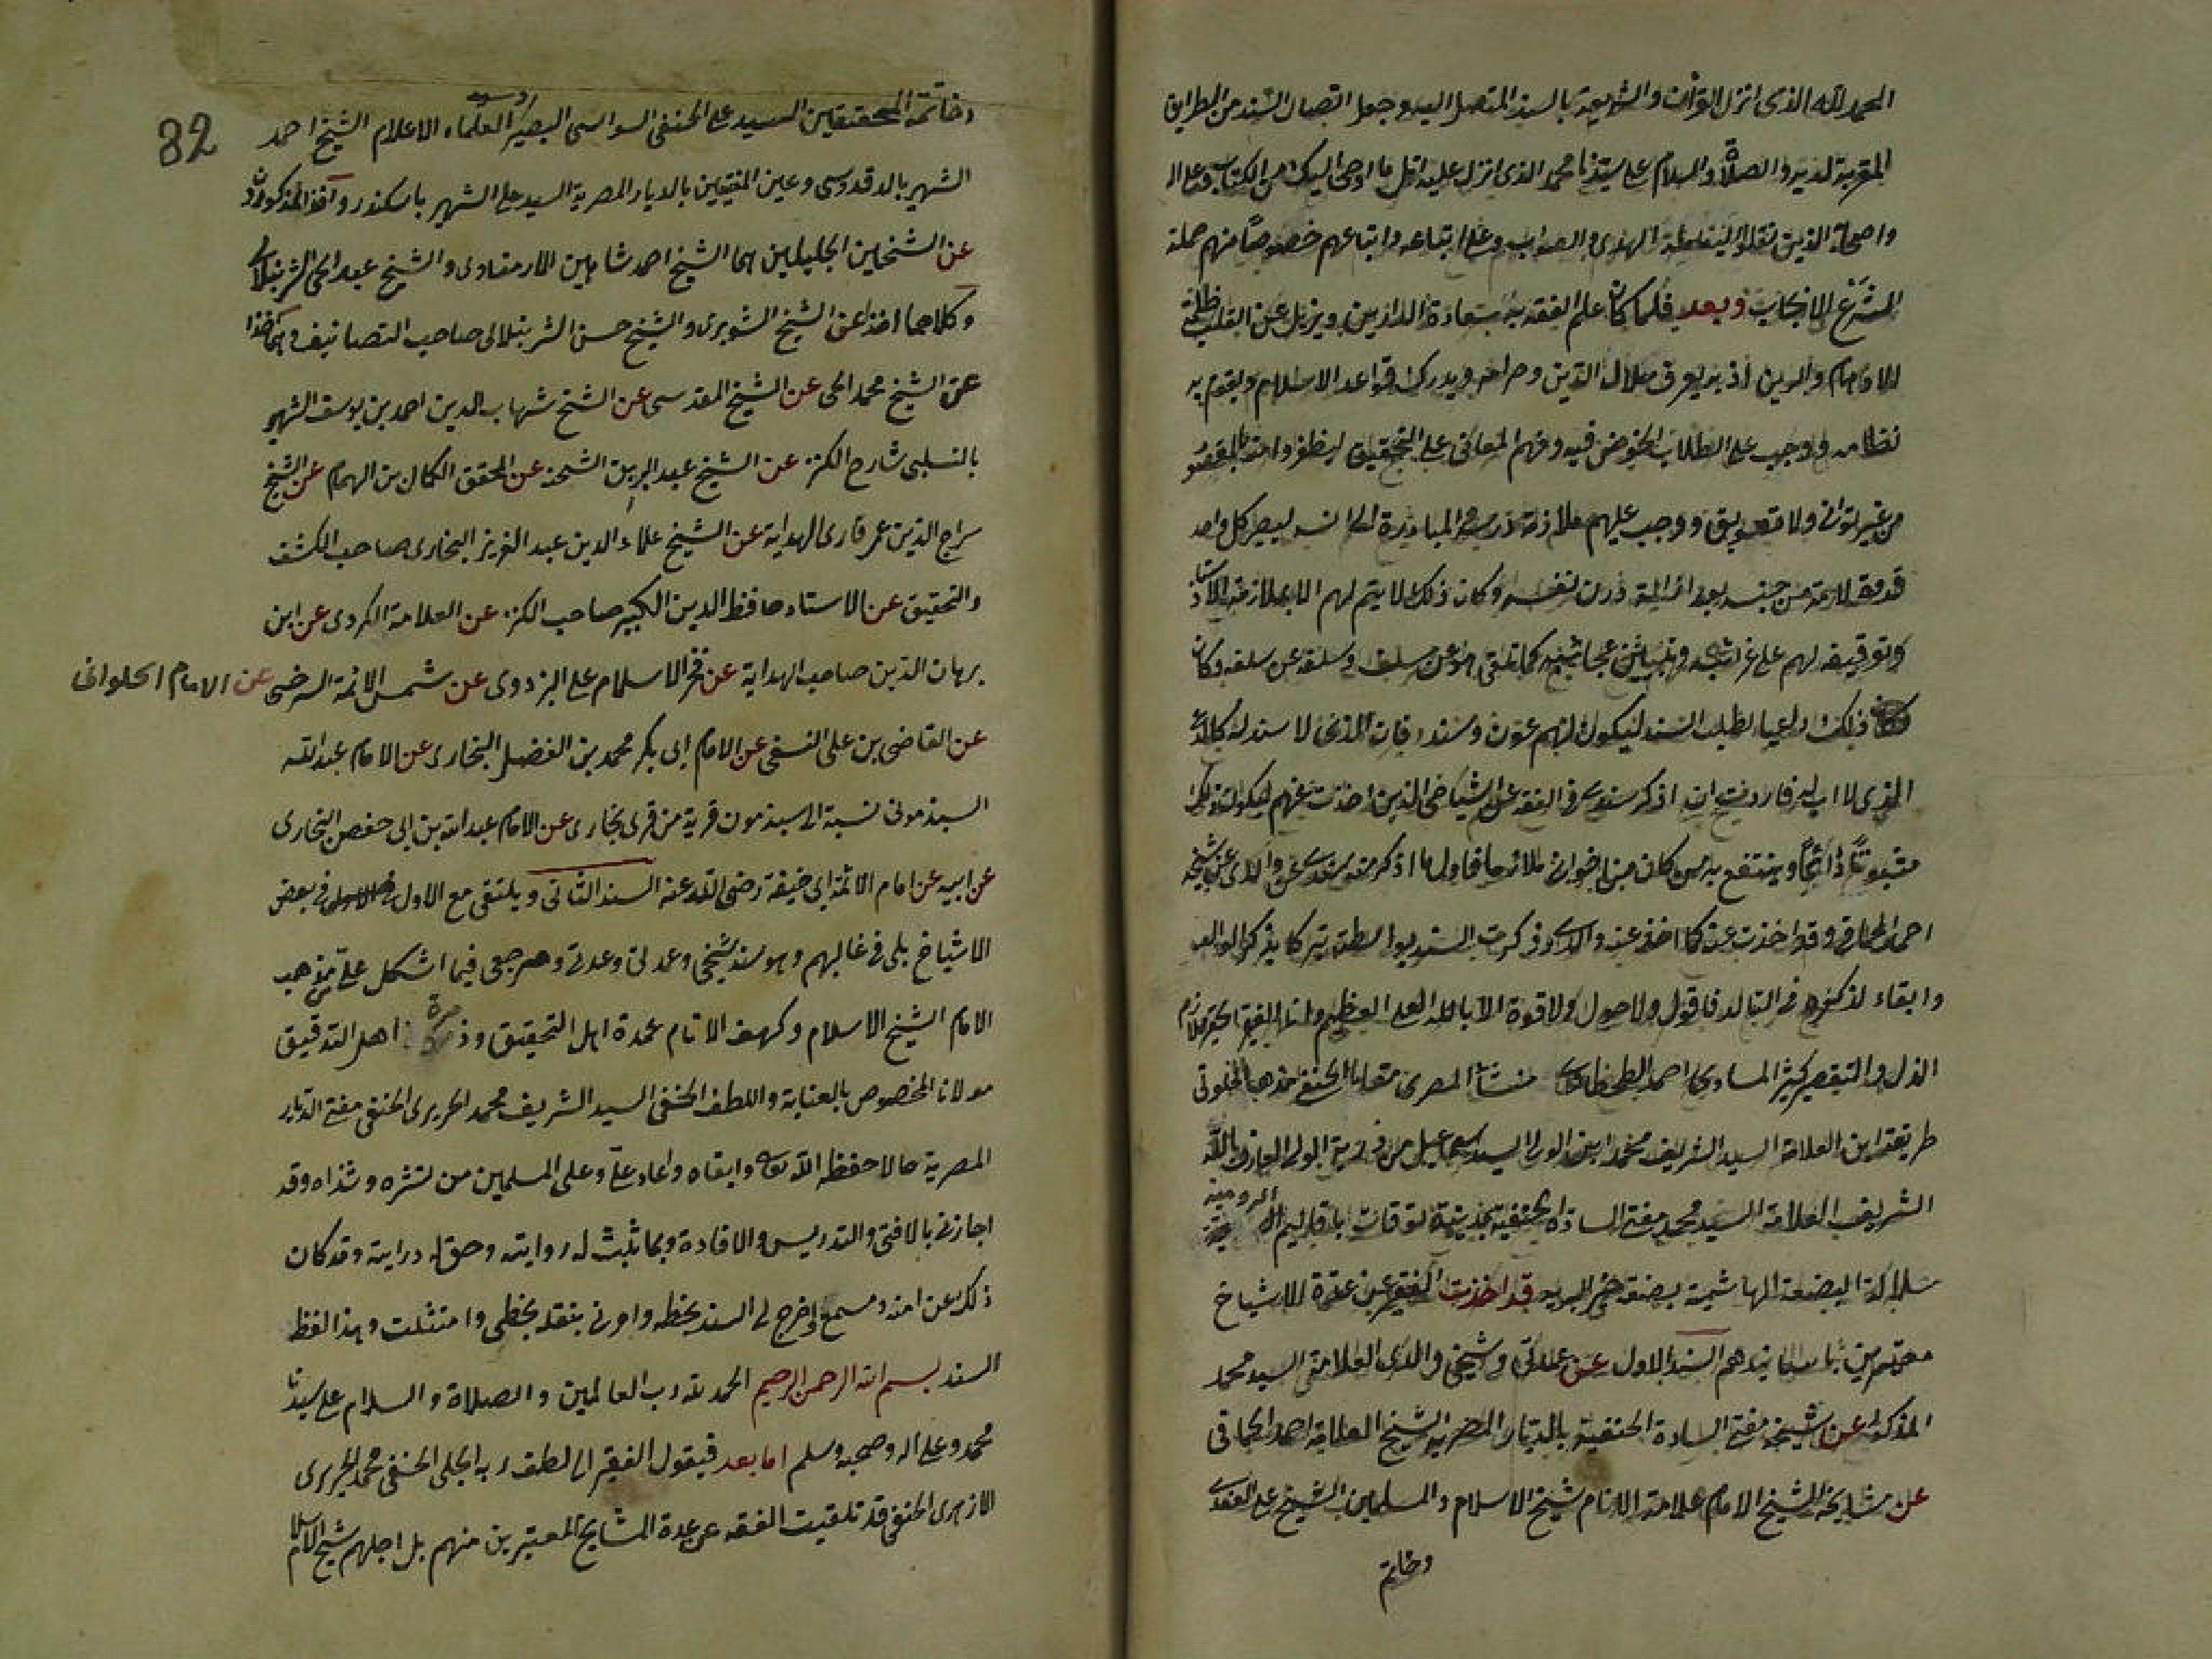 الحمد لله الذى انزل القرآن والشريعة بالسند المتصل اليه وجعل اتصال السند من الطرايق
المقربة لديه والصلاة والسلام على سيدنا محمد الذى انزل عليه اتل ما اوحى اليك من الكتاب وعلى ال
واصحابه الذين نقلوا الهدى والصواب وعلى اتباعه واتباعهم خصوصا منهم حملة
الشرع الانجاب وبعد فلما كان علم الفقه به سعادة الدارين ويزيل عن القلب ظلمة
الاوهام والرين اذ به يعرف حلال الدين وحرامه ويدرك قواعد الاسلام ويقوم به
نظامه ووجب على الطلاب الخوض فيه وفهم المعانى على التحقيق ليظفروا منه بالمقصود
من غير توانى ولا تعويق ووجب عليهم ملازمة درسه والمبادرة الى ليصير كل واحد
قدوة لامة من جنسه بعد ازالة درن نفسه وكان ذلك لا يتم لهم الا بملازمة الاستاذ
وتوقيفه لهم على غرائبه عجائبه كما تلقى هو عن سلفه وسلفه عن سلفه وكان
ذلك داعيا لطلب السند ليكون لهم عون وسند فان الذى لا سند له كالذى
الذى لا اب له فاردت ان اذكر سندى فى الفقه عن اشياخى الذين اخذت عنهم
وينتفع به من كان من اخوانى فاولها اذكر سندى عن والدى عن شيخه
احمد الحماقى وقد اخذت عنه كما اخذ عنه والدى وذكرت السند بواسطته تبركا بذكر الوالد
وابقاء لذكره فاقول ولا حول ولا قوة الا بالله العلى العظيم وانا الفقير الحقير ملازم
الذل والتقصير كثير المساوى احمد الطحطاوى منشأ المصرى مقاما الحنفى مذهبا الخلوتى
طريقة ابن العلامة السيد الشريف محمد ابن الولى السيد اسماعيل من ذرية الولى العارف بالله
الشريف العلامة السيد محمد مفتى السادة الحنفية بمدينة توقات باقاليم الرومية
سلالة البضعة الهاشمية بضعة خير البرية قد اخذت الفقه عن عدة الاشياخ
معتبرين باسانيدهم السند الاول عن عمدتى وشيخى والدى العلامة السيد محمد
المذكور عن شيخه مفتى السادة الحنفية بالديار المصرية الشيخ العلامة احمد الحماقى
عن مشايخه الشيخ الامام علامة الانام شيخ الاسلام والمسلمين الشيخ على العقدى
وخاتمة
82
وخاتمة المحققين السيد على الحنفى السواسى البصير وسيد العلماء الاعلام الشيخ احمد
الشهير بالدقدوسى وعين المفتيين بالديار المصرية السيد على الشهير باسكندر واخذ المذكورون
عن الشيخين الجليلين هما الشيخ احمد شاهين الارمناوى والشيخ عبد الحى الشرنبلالى
وكلاهما اخذا عن الشيخ الشوبرى والشيخ حسن الشرنبلالى صاحب التصانيف وهما اخذا
عن الشيخ محمد المحى عن الشيخ المقدسى عن الشيخ شهاب الدين احمد بن يوسف الشهير
بالشلبى شارح الكنز عن الشيخ عبد البر بن الشحنة عن المحقق الكمال بن الهمام عن الشيخ
سراج الدين عمر قارى الهداية عن الشيخ علاء الدين عبد العزيز البخارى صاحب الكشف
والتحقيق عن الاستاد حافظ الدين الكبير صاحب الكنز عن العلامة الكردى عن ابن
برهان الدين صاحب الهداية عن فخر الاسلام على البزدوى عن شمس الائمة السرخسى عن الامام الحلوانى
عن القاضى بن على النسفى عن الامام ابى بكر محمد بن الفضل البخارى عن الامام عبد الله
السبذمونى نسبة الى سبذمون قرية من قرى بخارى عن الامام عبد الله بن ابى حفص البخارى
عن ابيه عن امام الائمة ابى حنيفة رضى الله عنه السند الثانى ويلتقى مع الاول فى بعض
الاشياخ بلى فى غالبهم وهو سند شيخى وعمدتى وعدتى ومرجعى فيما اشكل على من مذهب
الامام الشيخ الاسلام وكهف الانام عمدة اهل التحقيق اهل التدقيق
مولانا المخصوص بالعناية واللطف الخفى السيد الشريف محمد الحريرى الحنفى مفتى الديار
المصرية حالا حفظه الله تعالى وابقاه واعاد على وعلى المسلمين من نشره وشذاه وقد
اجازنى بالافتى والتدريس والافادة وبما ثبت له روايته وحق له درايته وقد كان
ذلك عن اذنه ومسمع واخرج لى السند بخطه وامرنى بنقله بخطى وامتثلت وهذا لفظ
السند بسم الله الرحمن الرحيم الحمد لله رب العالمين والصلاة والسلام على سيدنا
محمد وعلى اله وصحبه وسلم اما بعد فيقول الفقير الى لطف ربه الجلى الخفى محمد الحريرى
الازهرى الحنفى قد تلقيت الفقه عن عدة المشايخ المعتبرين منهم بل اجلهم شيخ الاسلام